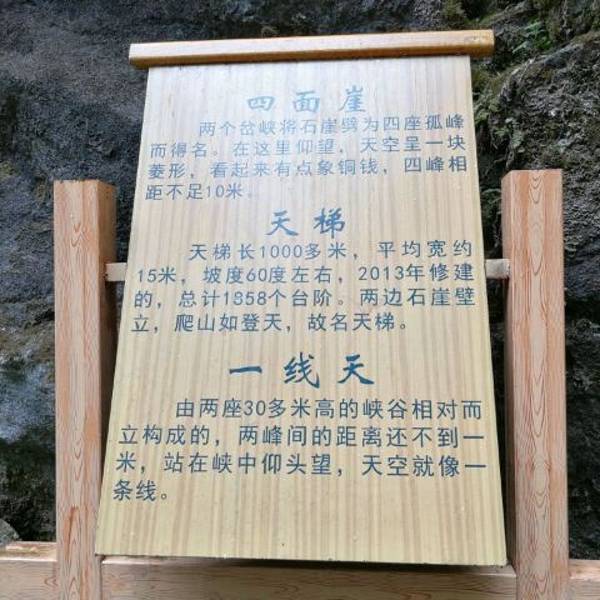 四面崖
两个岔峡将石崖劈为四座孤峰
而得名。在这里仰望，天空呈一块
菱形，看起来有点象铜钱，四峰相
距不足10米。
天梯
天梯长1000多米，平均宽约
15米，坡度60度左右，2013年修建
的，总计1358个台阶。两边石崖壁
立，爬山如登天，故名天梯。
一线天
由两座30多米高的峡谷相对而
立构成的，两峰间的距离还不到一
米，站在峡中仰头望，天空就像一
条线。